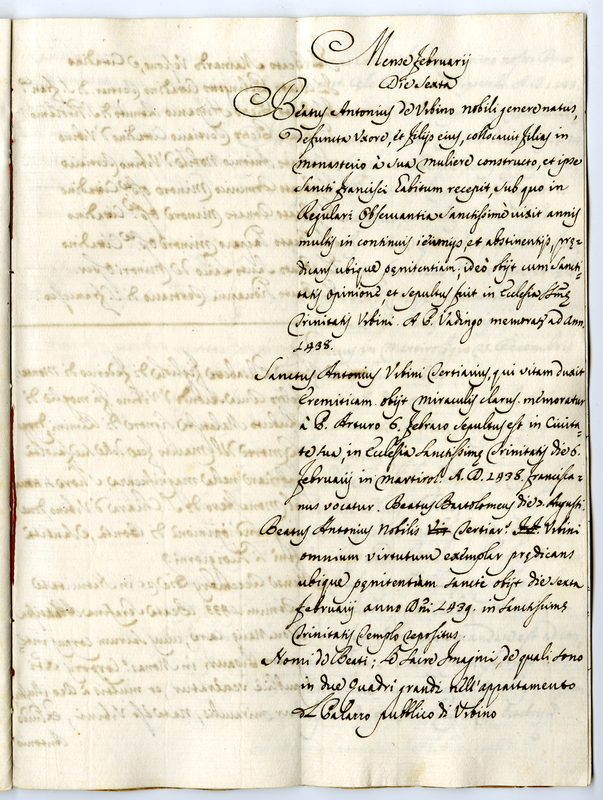 Mense februarij
Die Sexta
Beatus Antonius de Vrbino nobili genere natus,
defuncta Vxore, et filijs eius, collocauit filias in
monasterio à sua muliere constructo, et ipse
Sancti francisci habitum recepit, sub quo in
Regulari Obseruantia Sanctissimè uixit annis
multis in continuis ieiunijs, et abstinentijs, prę=
dicans ubique pęnitentiam; ideò obijt cum Sancti=
tatis opinione et sepultus fuit in Ecclesia Ssmę
Trinitatis Vrbini. A P. Vadingo memorat9 ad Ann.
1438.
Sanctus Antonius Vrbini Tertiarius, qui vitam duxit
Eremiticam. obijt miraculis clarus. memoratur
à P. Arturo 6. febraro sepultus est in Ciuita=
te sua, in Ecclesia Sanctissimę Trinitatis die 6.
februarij in martirol. A. D. 1438. francisca=
nus vocatur. Beatus Bartolomeus die 2. Augusti.
Beatus Antonius Nobilis Tertiar. Vrbini
omnium virtutum exemplar prędicans
ubique pęnitentiam sancte obijt die sexta
februarij anno Dni 1439. in Sanctissimę
Trinitatis Templo repositus.
Nomi de Beati; Le Sacre Imagini, de quali sono
in due Quadri grandi nell'appartamento
del Palazzo pubblico di Vrbino